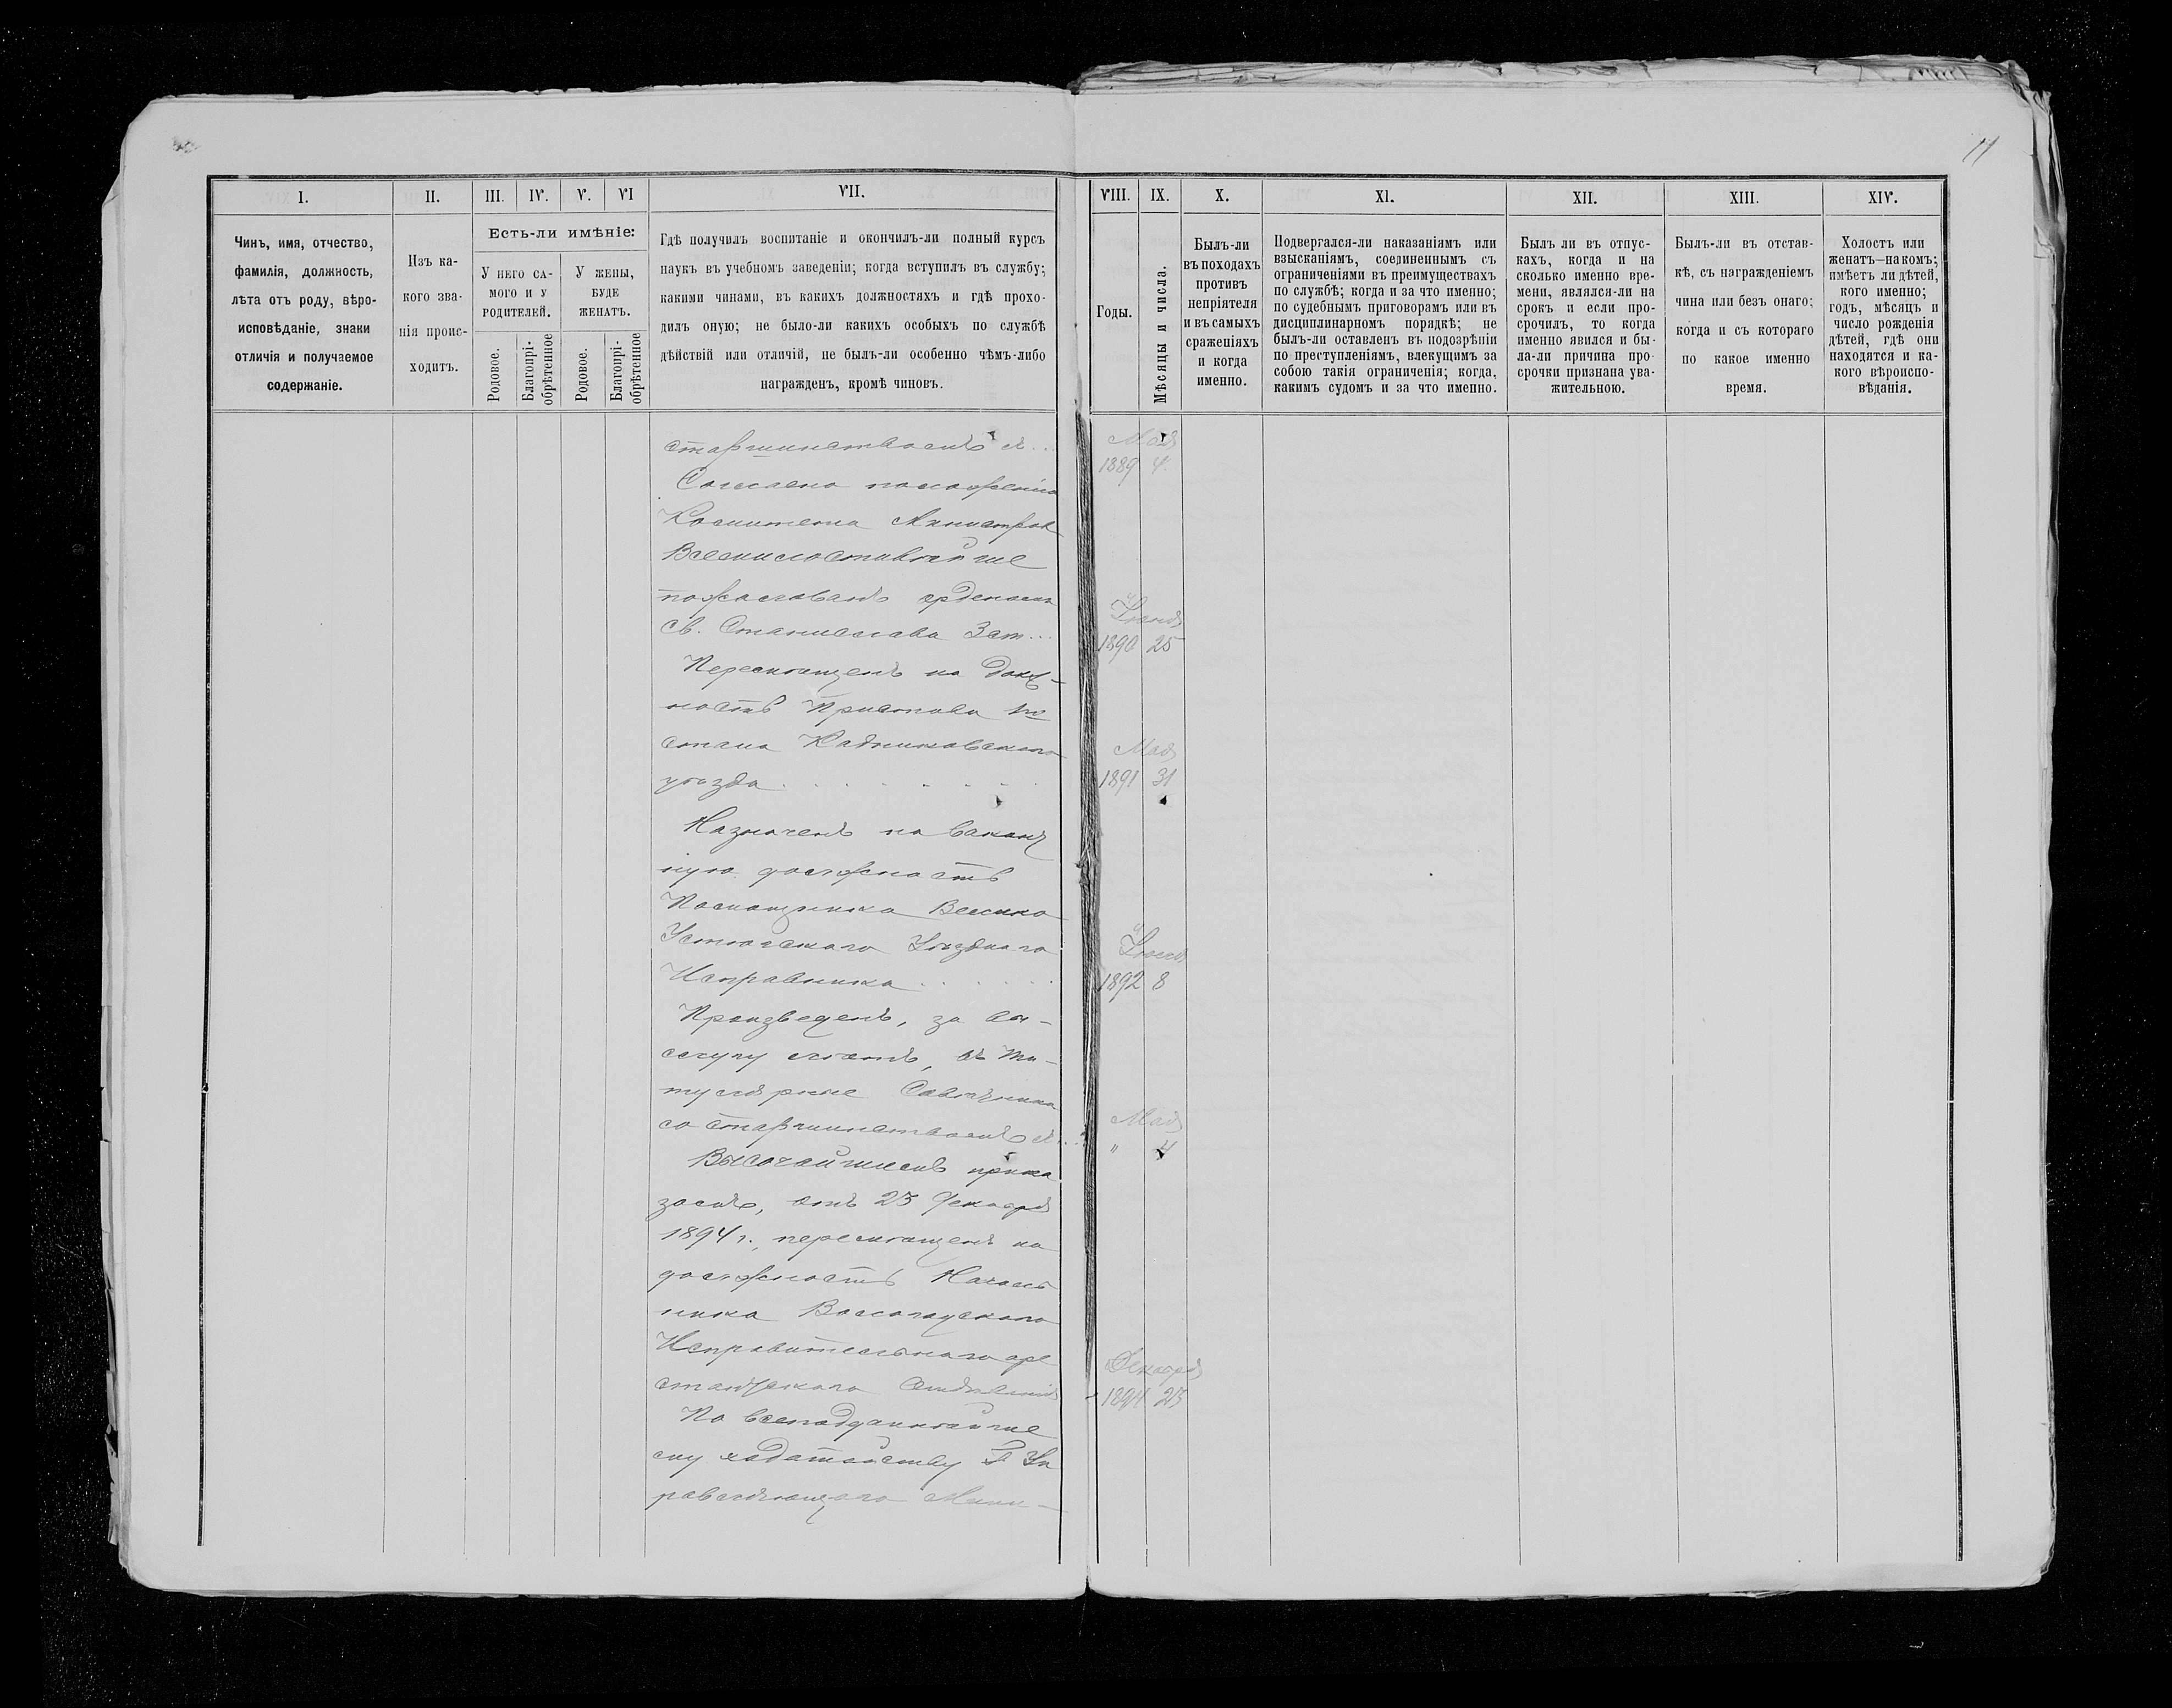 11
I.
II.
III.
IV.
V.
VI
VII.
VIII.
IX.
X.
XI.
XII.
XIII.
XIV.
Чинъ, имя, отчество,
фамилія, должность,
лѣта отъ роду, вѣро-
исповѣданіе, знаки
отличія и получаемое
содержаніе.
Изъ ка-
кого зва-
нія проис-
ходитъ.
Есть-ли имѣніе:
У него са-
мого и у
родителей.
У жены,
буде
женатъ.
Родовое.
Благопрі-
обрѣтенное
Родовое.
Благопрі-
обрѣтенное
Гдѣ получилъ воспитаніе и окончилъ-ли полный курсъ
наукъ въ учебномъ заведеніи; когда вступилъ въ службу;
какими чинами, въ какихъ должностяхъ и гдѣ прохо-
дилъ оную; не было-ли какихъ особыхъ по службѣ
дѣйствій или отличій, не былъ-ли особенно чѣмъ-либо
награжденъ, кромѣ чиновъ.
Годы.
Мѣсяцы и числа.
Былъ-ли
въ походахъ
противъ
непріятеля
и въ самыхъ
сраженіяхъ
и когда
именно.
Подвергался-ли наказаніямъ или
взысканіямъ, соединеннымъ съ
ограниченіями въ преимуществахъ
по службѣ; когда и за что именно;
по судебнымъ приговорамъ или въ
дисциплинарномъ порядкѣ; не
былъ-ли оставленъ въ подозрѣніи
по преступленіямъ, влекущимъ за
собою такія ограниченія; когда,
какимъ судомъ и за что именно.
Былъ ли въ отпус-
кахъ, когда и на
сколько именно вре-
мени, являлся-ли на
срокъ и если про-
срочилъ, то когда
именно явился и бы-
ла-ли причина про
срочки признана ува-
жительною.
Былъ-ли въ отстав-
кѣ, съ награжденіемъ
чина или безъ онаго;
когда и съ котораго
по какое именно
время.
Холостъ или
женатъ—на комъ;
имѣетъ ли дѣтей,
кого именно;
годъ, мѣсяцъ и
число рожденія
дѣтей, гдѣ они
находятся и ка-
кого вѣроиспо-
вѣданія.
старшинствомъ съ ..
Мая
1889 4.
Согласно положенію
Комитета Министров
Всемилостивѣйше
пожалованъ орденомъ
Св. Станислава 3 ст...
Іюня
1890 25
Перемѣщенъ на долж-
ность Пристава 1го
стана Кадниковскаго
уѣзда . . . . . . .
Мая
1891 31
Назначенъ на вакант
ную должность
Помощника Велико
Устюгскаго Уѣзднаго
Исправника . . . . .
1892 8
Произведенъ, за вы-
слугу лѣтъ, въ Ти-
тулярные Совѣтники
со старшинствомъ съ..
Мая
" 4
Высочайшимъ прика
зомъ, отъ 23 Декабря
1894 г., перемѣщенъ на
должность Началь
ника Вологодскаго
Исправительнаго аре
стантскаго Отдѣленія
Декабря
1894 23
По всеподданнѣйше
му ходатайству Г. Уп
равляющаго Мини-